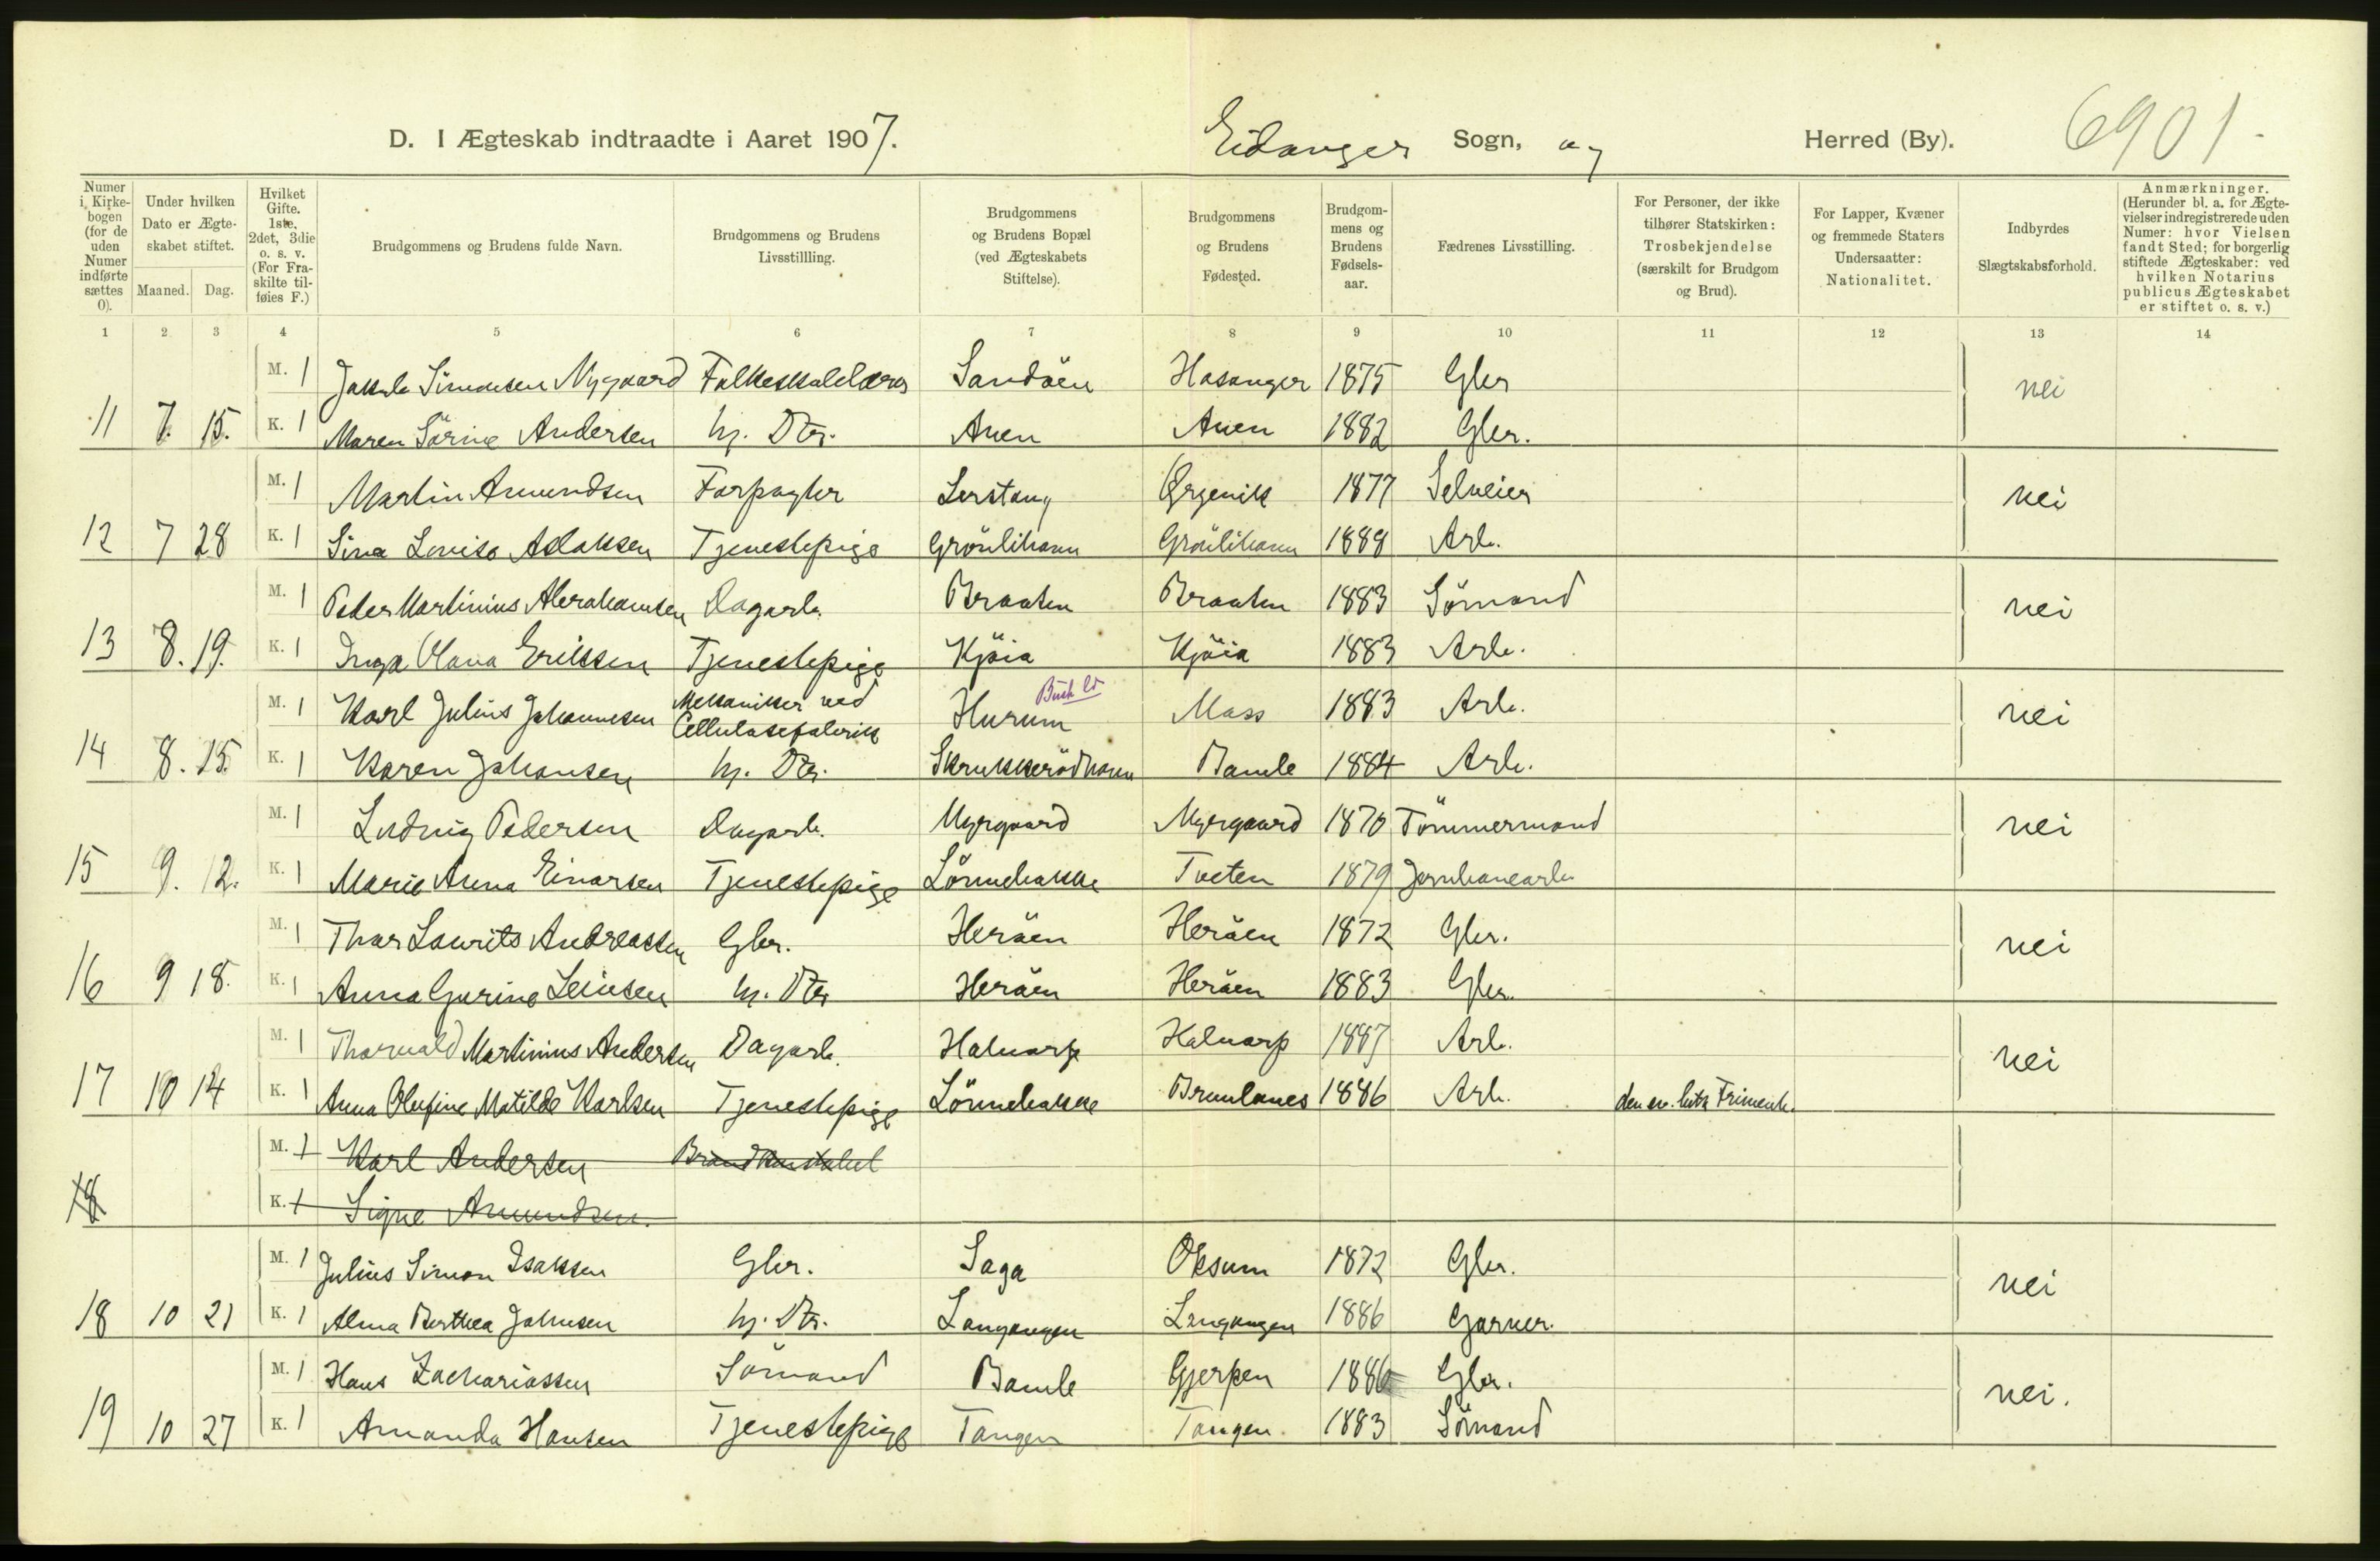 D. I Ægteskab indtraadte i Aaret 1907. Eidanger Sogn, og Herred (By). 6901.
Numer i Kirkebogen (for de uden Numer indførte sættes 0).
Under hvilken Dato er Ægteskabet stiftet.
Maaned. Dag.
Hvilket Gifte. 1ste, 2det, 3die o. s. v. (For Fraskilte tilføies F.)
Brudgommens og Brudens fulde Navn.
Brudgommens og Brudens Livsstillling.
Brudgommens og Brudens Bopæl (ved Ægteskabets Stiftelse).
Brudgommens og Brudens Fødested.
Brudgommens og Brudens Fødselsaar.
Fædrenes Livsstilling.
For Personer, der ikke tilhører Statskirken: Trosbekjendelse (særskilt for Brudgom og Brud).
For Lapper, Kvæner og fremmede Staters Undersaatter: Nationalitet.
Indbyrdes Slægtskabsforhold.
Anmærkninger. (Herunder bl. a. for Ægtevielser indregistrerede uden Numer: hvor Vielsen fandt Sted; for borgerlig stiftede Ægteskaber: ved hvilken Notarius publicus Ægteskabet er stiftet o. s. v.)
1 2 3 4 5 6 7 8 9 10 11 12 13 14
M. 1 Jakob Simonsen Nygaard Folkeskolelærer Sandöen 1875 Gbr nei
11 7. 15. K. 1 Maren Sörine Andersen hj. Dtr. Auen Auen 1882 Gbr.
M. 1 Martin Amundsen Forpagter Lerstang Ørgenvik 1877 Selveier nei
12 7 28 K. 1 Sina Lovise Aslaksen Tjenestepige Grönlihavn Grönlihavn Arb.
M. 1 Peder Martinius Abrahamsen Dagarb. Braaten Braaten 1883 Sömand nei
13 8. 19. K. 1 Inga Olava Eriksen Tjenestepige Kjöia Kjöia 1883 Arb.
M. 1 Karl Julius Johannesen Mekaniker ved Cellulosefabrik Hurum Moss 1883 Arb. nei
14 8. 15. K. 1 Karen Johansen hj. Dtr. Skrukkerödhavn Bamle 1884 Arb.
M. 1 Ludvig Pedersen Dagarb. Myrgaard Myrgaard 1870 Tömmermand nei
15 9. 12. K. 1 Marie Anna Einarsen Tjenestepige Lönnebakke Tveten 1879 Jernbanearb.
M. 1 Thor Laurits Andreassen Gbr. Heröen Heröen 1872 Gbr. nei
16 9 18. K. 1 Anna Gurine Leinsen hj. Dtr Heröen Heröen 1883 Gbr.
M. 1 Thorvald Martinius Andersen Dagarb. Halvarp Halvarp 1887 Arb. nei
17 10 14 K. 1 Anna Olufine Matilde Karlsen Tjenestepige Lönnebakke Brunlanes 1886 Arb. den ev. luth. Frimenh.
M. 1 Karl Andersen Brandkonstabel
18 K. 1 Signe Amundsen.
M. 1 Julius Simon Isaksen Gbr. Saga Oksum 1872 Gbr. nei
18 10 21 K. 1 Alma Berthea Johnsen hj. Dtr. Langangen Langangen 1886 Garver.
M. 1 Hans Zachariassen Sömand Bamle Gjerpen 1886 Gbr. nei.
19 10 27 K. 1 Amanda Hansen Tjenestepige Tangen Tangen 1883 Sömand